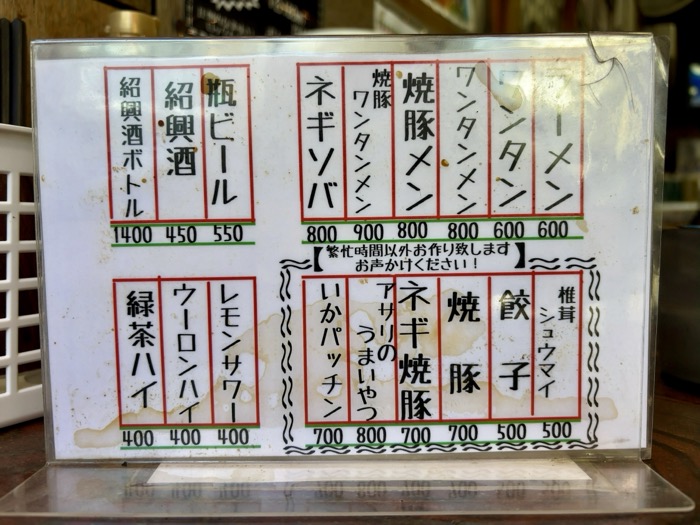 ラーメン
600
ワンタン
600
ワンタンメン
800
焼豚メン
800
焼豚
ワンタンメン
900
ネギソバ
800
瓶ビール
550
紹興酒
450
紹興酒ボトル
1400
【繁忙時間以外お作り致します
お声かけください!】
椎茸
シュウマイ
500
餃子
500
焼豚
700
ネギ焼豚
700
アサリの
うまいやつ
800
いかパッチン
700
レモンサワー
400
ウーロンハイ
400
緑茶ハイ
400